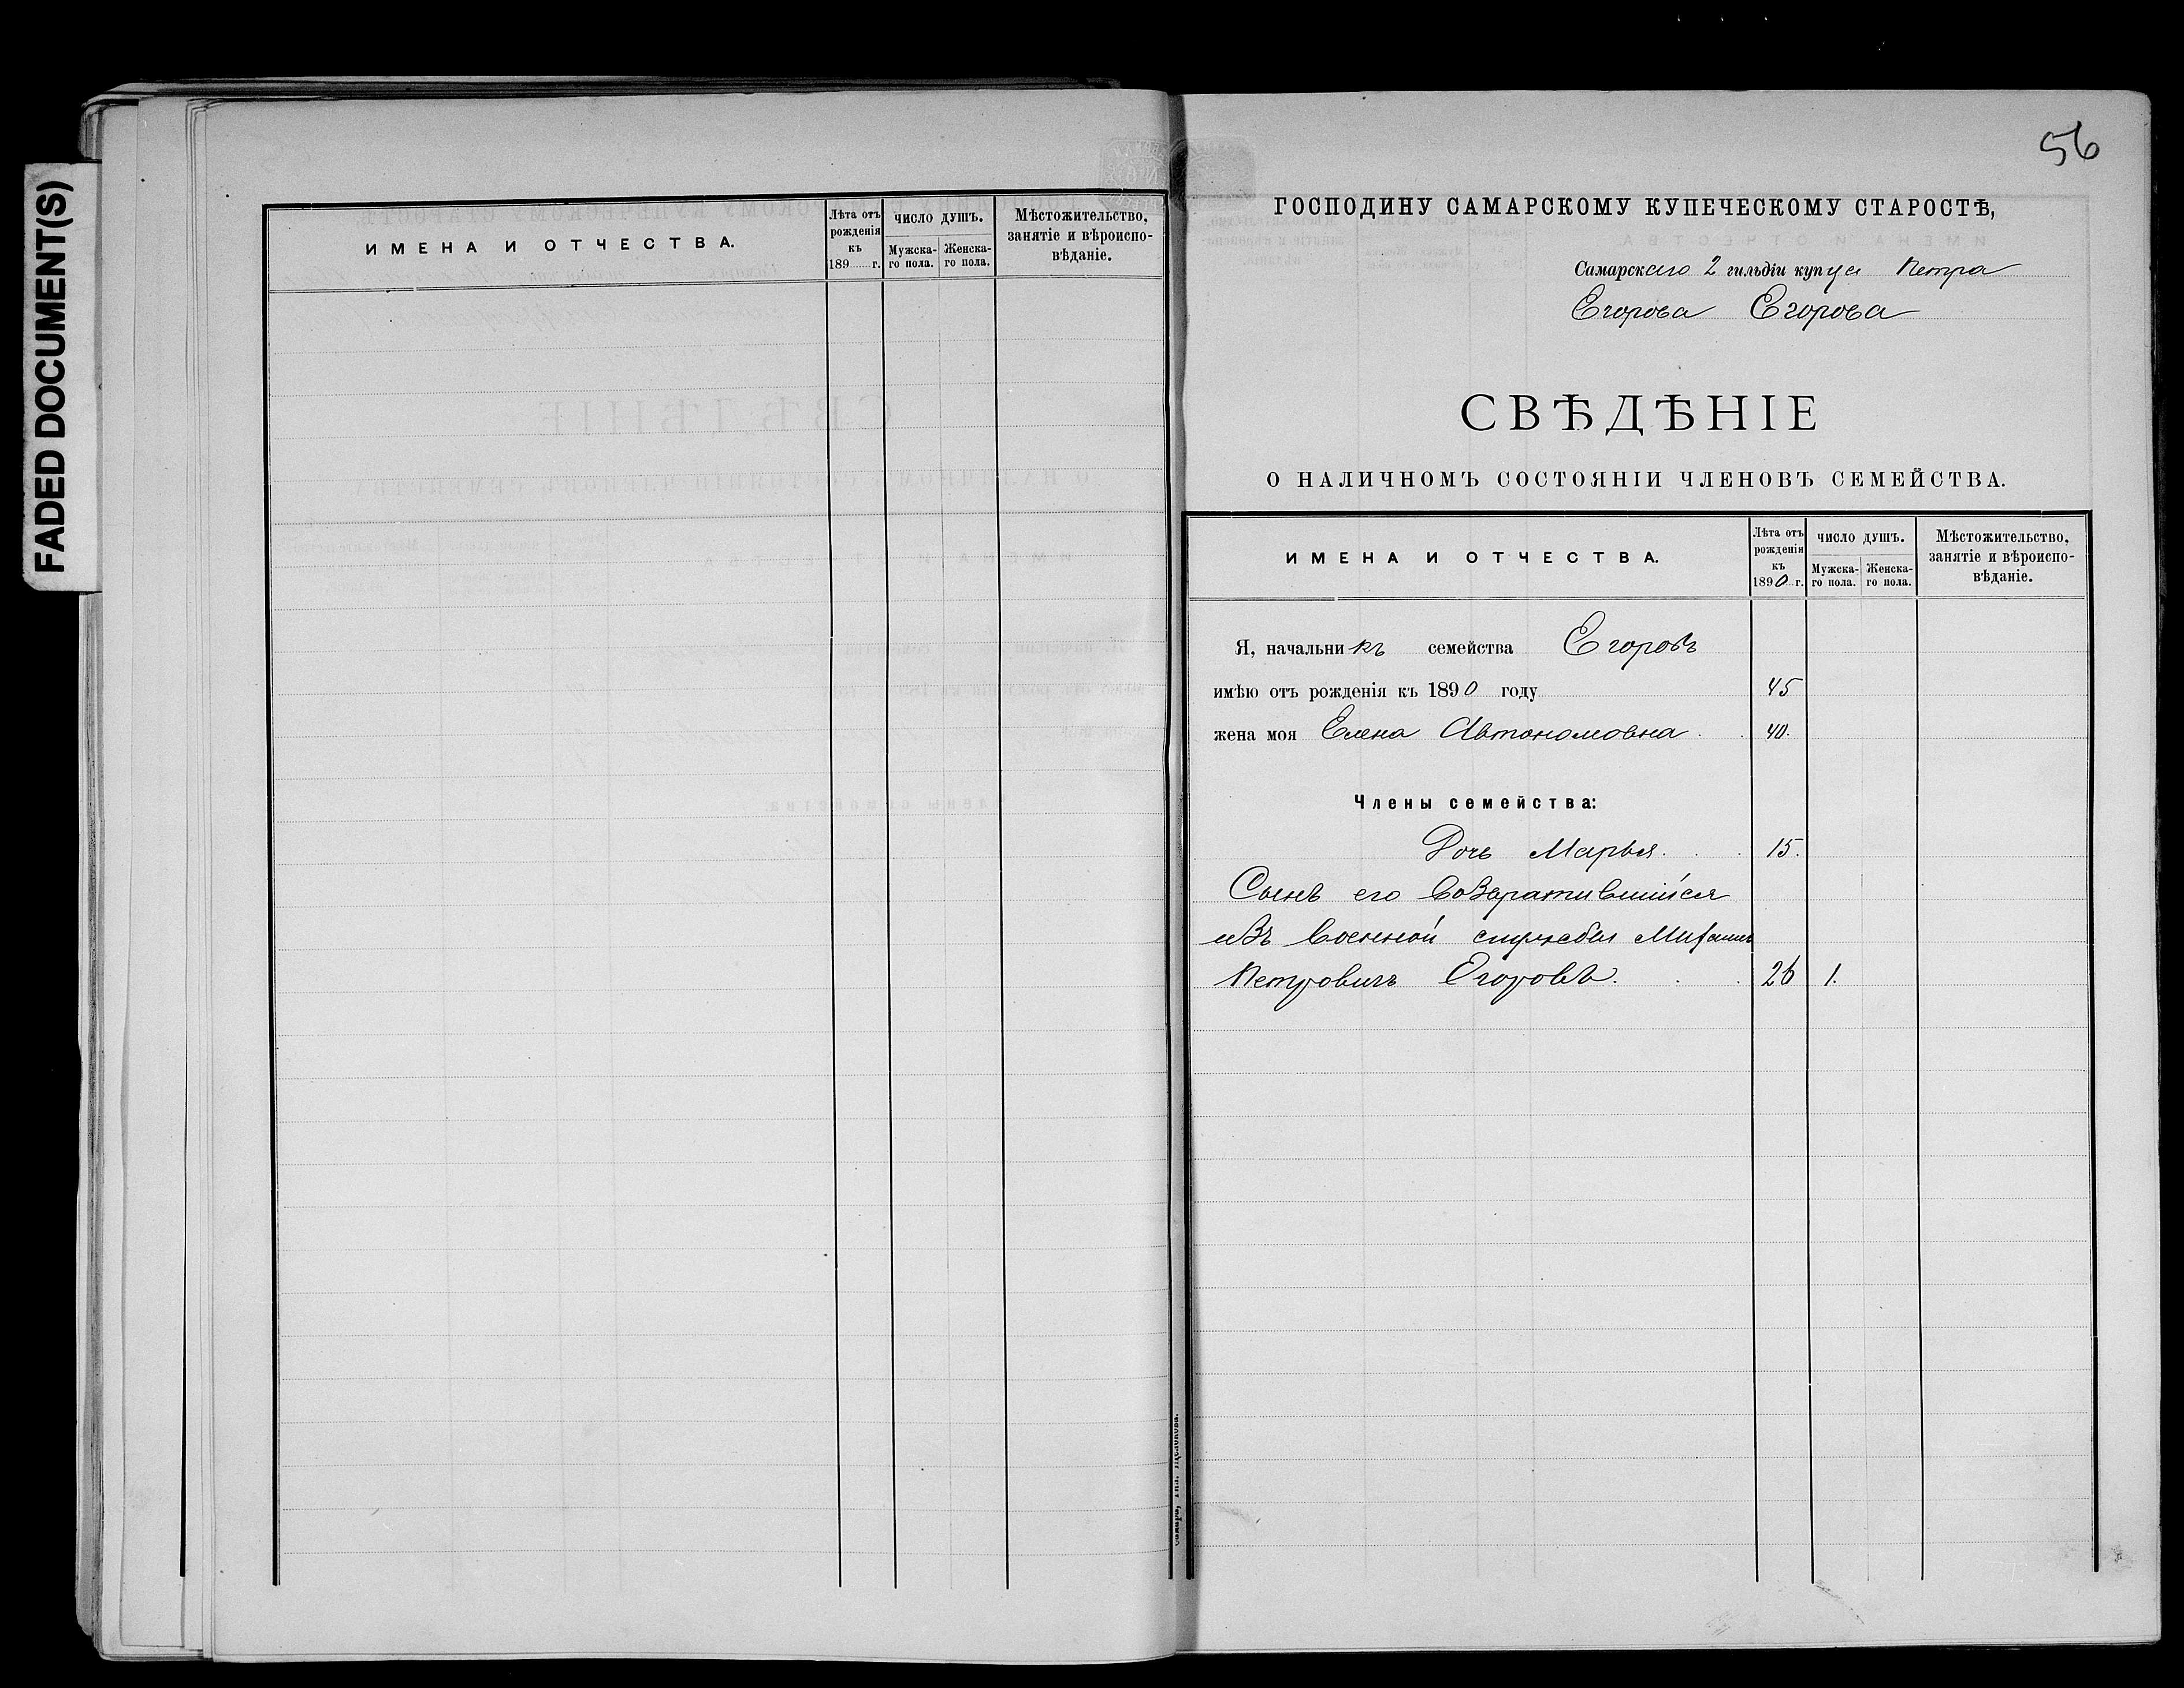 FADED DOCUMENT(S)
ИМЕНА И ОТЧЕСТВА.
Лѣта отъ рожденія къ 189 г.
ЧИСЛО ДУШЪ.
Мужска-го пола.
Женска-го пола.
Мѣстожительство, занятіе и вѣроиспо-вѣданіе.
56
ГОСПОДИНУ САМАРСКОМУ КУПЕЧЕСКОМУ СТАРОСТѢ,
Самарскаго 2 гильдіи купца Петра
Егорова Егорова
СВѢДѢНІЕ
О НАЛИЧНОМЪ СОСТОЯНІИ ЧЛЕНОВЪ СЕМЕЙСТВА.
ИМЕНА И ОТЧЕСТВА.
Лѣта отъ рожденія къ 1890 г.
ЧИСЛО ДУШЪ.
Мужска-го пола.
Женска-го пола.
Мѣстожительство, занятіе и вѣроиспо-вѣданіе.
Я, начальникъ семейства Егоровъ
имѣю отъ рожденія къ 1890 году 45
жена моя Елена Автономовна . . 40.
Члены семейства:
Дочь Марья. . . 15.
Сынъ его возвратившійся
изъ военной службы Михаилъ
Петровичъ Егоровъ. . . 26 1.
Самара, Тип. Щелокова.